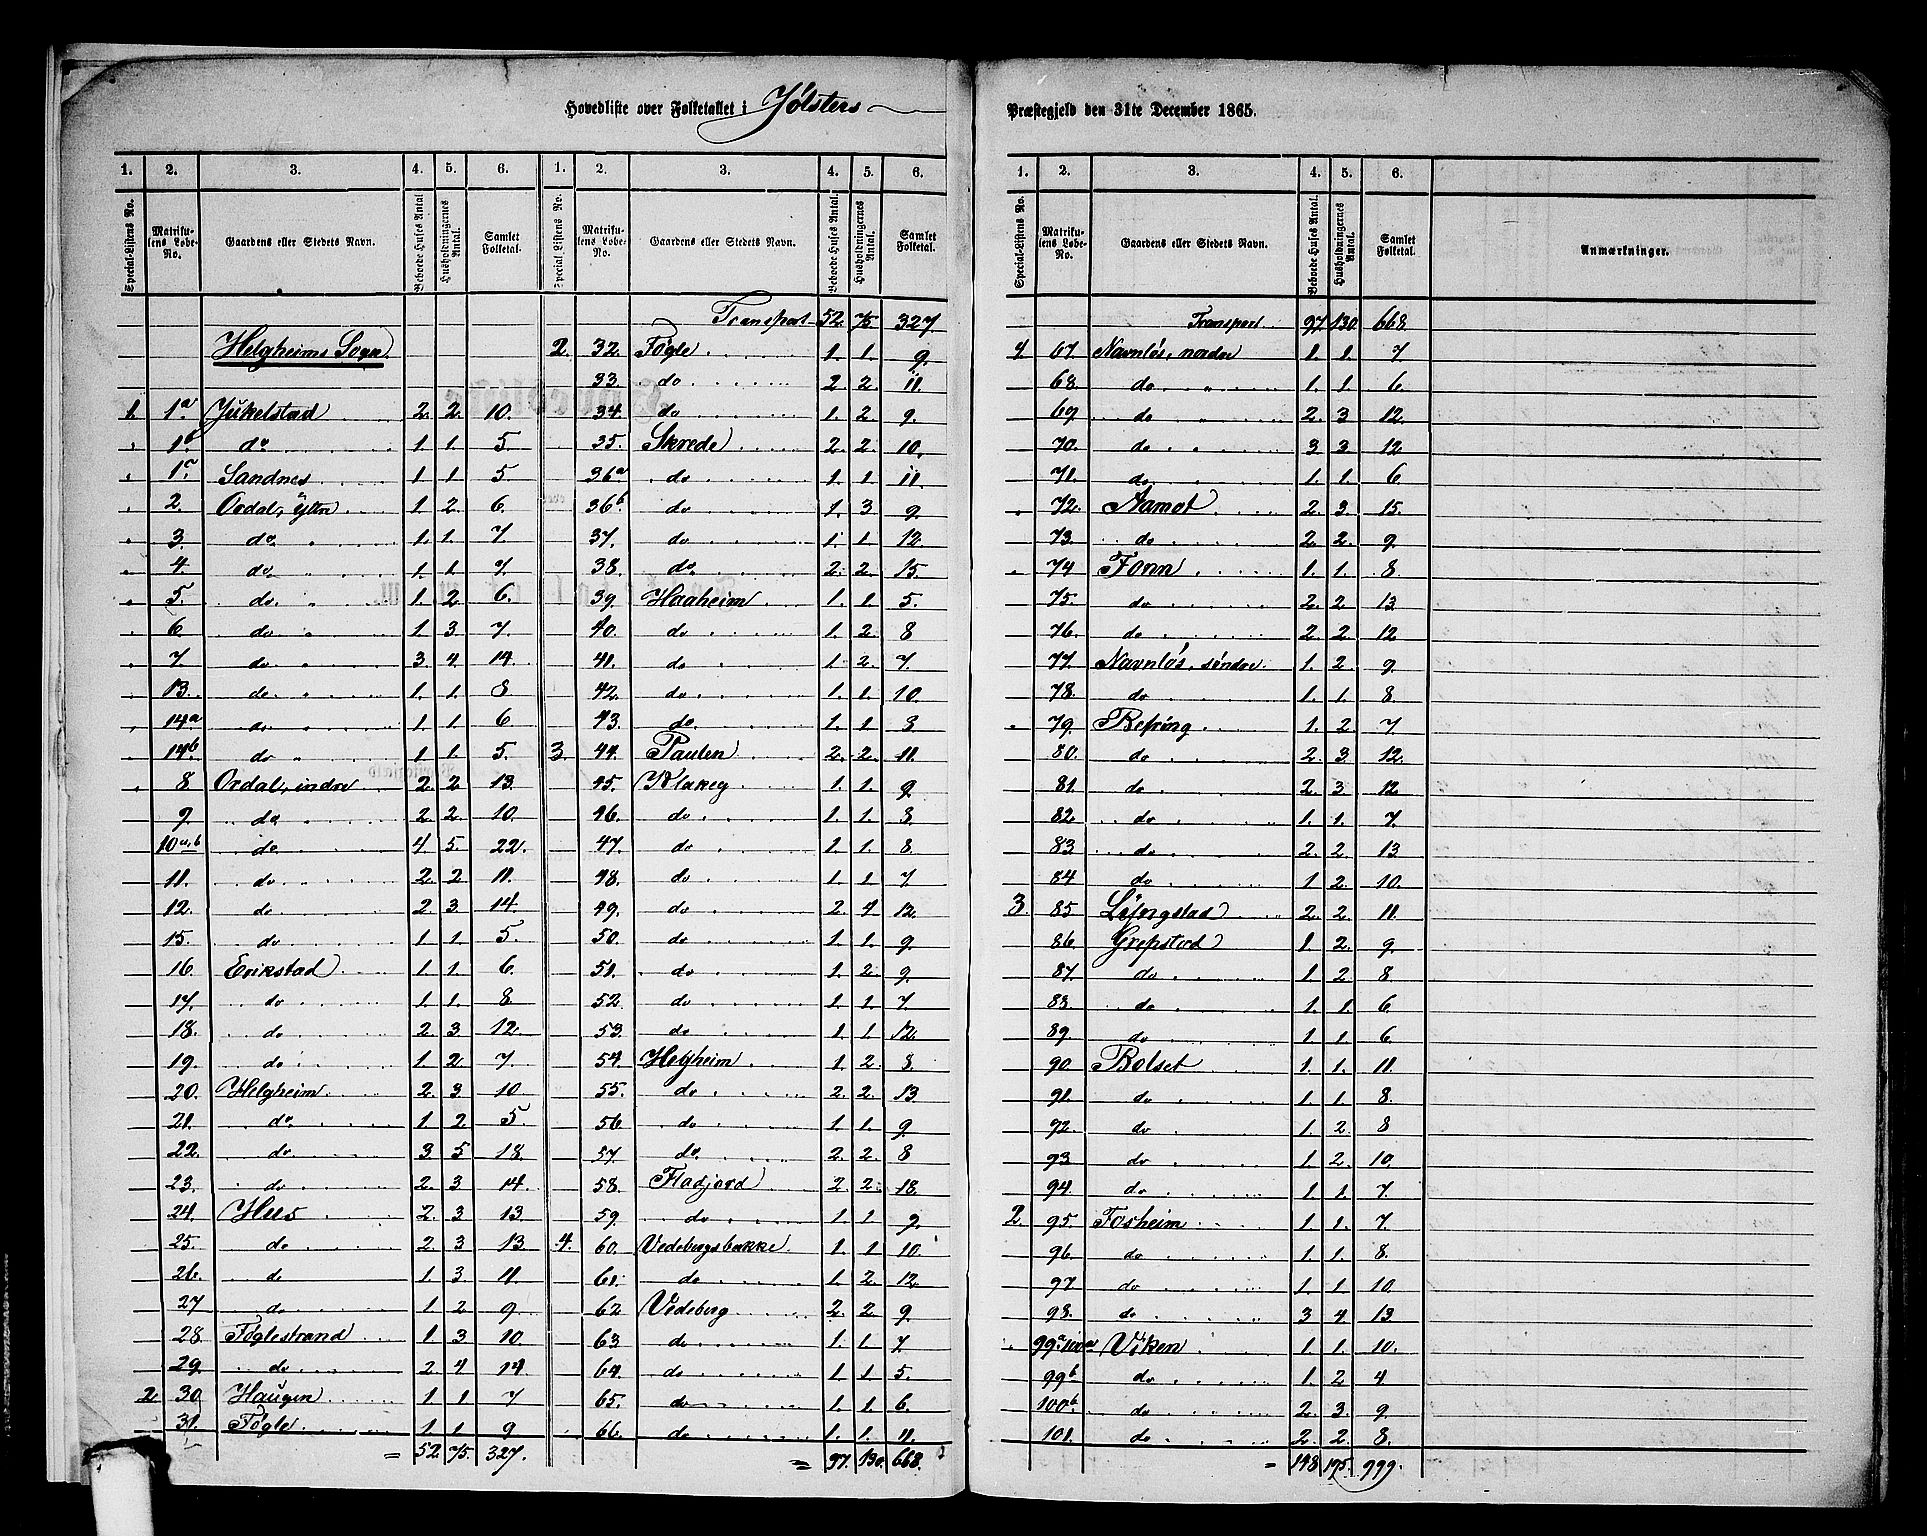 Hovedliste over Folketallet i Jølsters Præstegjeld den 31te December 1865.
1. 2. 3. 4. 5. 6. 1. 2. 3. 4. 5. 6.
Special-Listens No. Matrikulens Løbe-No. Gaardens eller Stedets Navn. Beboede Huses Antal Husholdningernes Antal. Samlet Folketal. Special-Listens No. Matrikulens Løbe-No. Gaardens eller Stedets Navn. Beboede Huses Antal. Husholdningernes Antal. Samlet Folketal.
Helgheims Sogn.
1. 1a. Jukelstad 2. 2. 10.
1b. do 1. 1. 5.
1c. Sandnes 1 1 5
2. Ordal, ytre 1. 2. 6.
3. do. 1. 1. 7
4. do. 1. 1. 7.
5. do. 1. 2. 6.
6 do 1. 3. 7.
7. do 3. 4. 14.
13. do 1. 1. 8
14a do 1. 1 6
14b. do 1 1. 5.
8 Ordal, indre 2. 2. 13.
9. do 2 2. 10.
10a,b do 4 5. 22.
11. do 2. 2 11.
12. do 2. 3. 14.
15. do 1 1. 5.
16. Erikstad 1 1. 6.
17. do 1. 1. 8.
18. do 2. 3 12.
19. do 1. 2. 7
20. Helgheim 2. 3 10
21. do. 1 2 5.
22. do. 3 5 18.
23. do 2. 3 14.
24. Hus 2. 3 13.
25. do 2. 3 13
26. do 1. 3 11.
27 do 1 2 9
28. Føglestrand 1 3 10
29. do 2. 4 14
2. 30. Haugen 1 1 7
31. Føgle 1 1 9
= 52. 75. 327.
Transport 52. 75 327
2. 32. Føgle 1. 1. 9.
33. do 2. 2. 11.
34. do 1. 2. 9.
35. Skrede 2. 2. 10.
36a do 1. 1. 11.
36b. do 1. 3 9.
37. do 1. 1. 12
38. do. 2. 2. 15.
39. Haaheim 1. 1. 5.
40. do 1. 2. 8
41. do 1. 2. 7.
42. do 1. 1. 10
43. do 1. 1. 3
3. 44. Paulen 2. 2. 11.
45. Klakeg 1. 1. 9.
46. do 1. 1. 3
47. do 1. 1. 8.
48. do 1 1. 7
49. do 2. 4 12.
50. do 1. 1. 9.
51. do 1. 2. 9
52. do 1. 1. 7.
53. do 1. 1 12
54. Helgheim 1. 2. 8.
55. do 2. 2. 13
56 do 1. 1. 9
57. do. 2. 2. 8
58. Fladjord 2 2. 18.
59. do 1. 1 9.
4. 60. Vedebergsbakke. 1. 1 10.
61. do 1. 2. 12.
62 Vedeberg 2. 2. 9
63 do 1. 1. 7.
64. do 1 1 5.
65. do 1. 1. 6.
66. do 1. 1. 11.
= 97. 130. 668.
1. 2. 3. 4. 5. 6.
Special-Listens No. Matrikulens Løbe-No. Gaardens eller Stedets Navn. Beboede Huses Antal. Husholdningernes Antal. Samlet Folketal. Anmærkninger.
Transport 97 130 668.
4 67. Navnløs, nordre 1. 1. 7
68. do 1. 1. 6.
69 do 2. 3 12.
70. do 3 3 12
71. do 1. 1. 6
72. Aamot 2. 3. 15.
73. do 2. 2. 9.
74 Fonn 1. 1. 8.
75. do 2. 2 13.
76. do 2. 2. 12
77. Navnløs, søndre. 1. 2. 9.
78. do 1. 1. 8.
79. Befring 1. 2. 7
80. do 2. 3. 12.
81. do 2. 3 12
82 do 1. 1. 7.
83 do 2. 2. 13
84 do 1 2. 10.
3. 85 2. 2. 11.
86. Grepstad 1. 2. 9.
87. do 1. 2 8.
88. do 1. 1. 6.
89. do 1 1 6.
90. Bolset 1. 1. 11.
91. do 1 1. 8.
92. do 1. 2. 8
93 do 1. 2. 10.
94. do 1. 1. 7.
2. 95. Fosheim 1. 1. 7.
96 do 1. 1. 8.
97. do 1. 1. 10
98. do 3 4 13.
Viken 1. 1. 10.
99b do 1. 2 4
100b. do 2. 3. 9.
101. do 2. 2. 8.
= 148 195. 999.